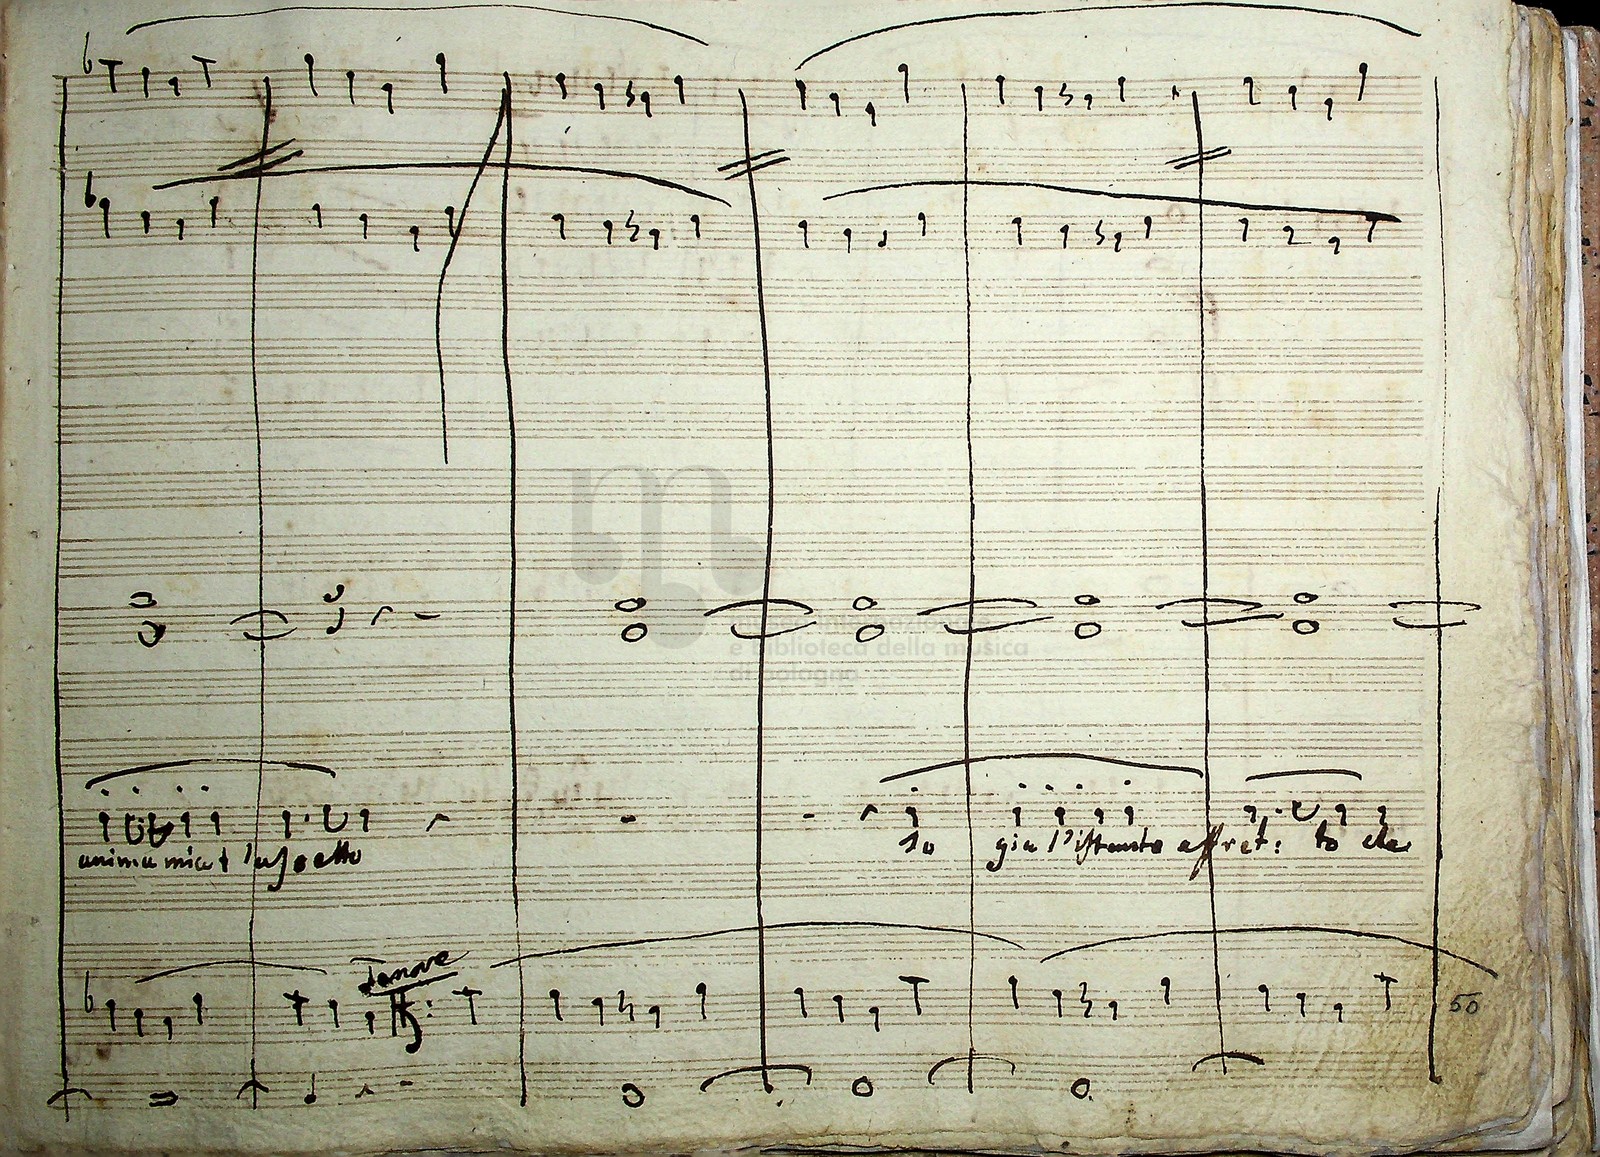 e biblioteca della musica
di bologna
anima mia t'aspetto
Io già l'istante affret: to che
Tenore
50